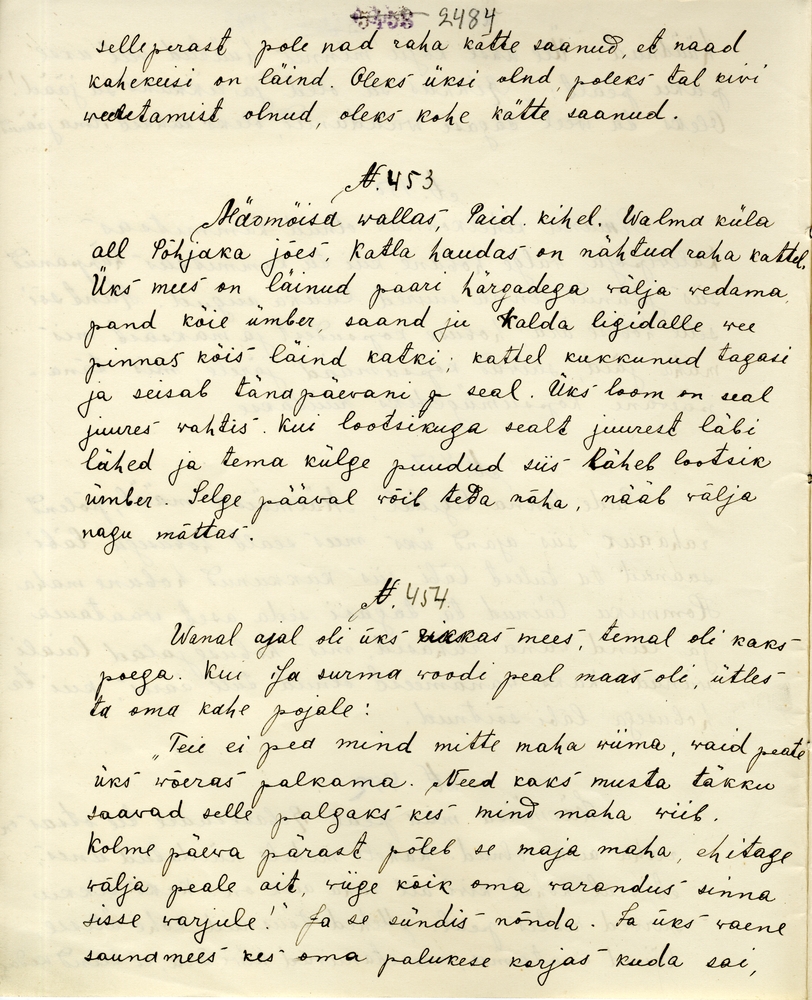 5458 2484
selleperast pole nad raha kätte saanud, et naad
kahekeisi on läind. Oleks üksi olnd, poleks tal kivi
weeletamist olnud, oleks kohe kätte saanud.
N. 453
Mäomõisa wallas, Paid. kihel. Walma küla
all Põhjaka jões, Katla haudas on nähtud raha kattel.
Üks mees on läinud paari härgadega wälja wedama,
pand köie ümber, saand ju kalda ligidalle wee
pinnas köis läind katki; kattel kukkunud tagasi
ja seisab tänapäevani seal. Üks loom on seal
juures wahtis. Kui lootsikuga sealt juurest läbi
lähed ja tema külge puudud siis läheb lootsik
ümber. Selge pääwal wõib teda näha, nääb wälja
nagu mättas.
N. 454.
Wanal ajal oli üks rikkas mees, temal oli kaks
poega. Kui isa surma woodi peal maas oli, ütles
ta oma kahe pojale:
„Teie ei pea mind mitte maha wiima, waid peate
üks wõeras palkama. Need kaks musta täkku
saawad selle palgaks kes mind maha wiib.
Kolme päewa pärast põleb se maja maha, ehitage
wälja peale ait, wiige kõik oma warandus sinna
sisse warjule!" Ja se sündis nõnda. Ja üks waene
saunamees kes oma palukese korjas kuda sai,